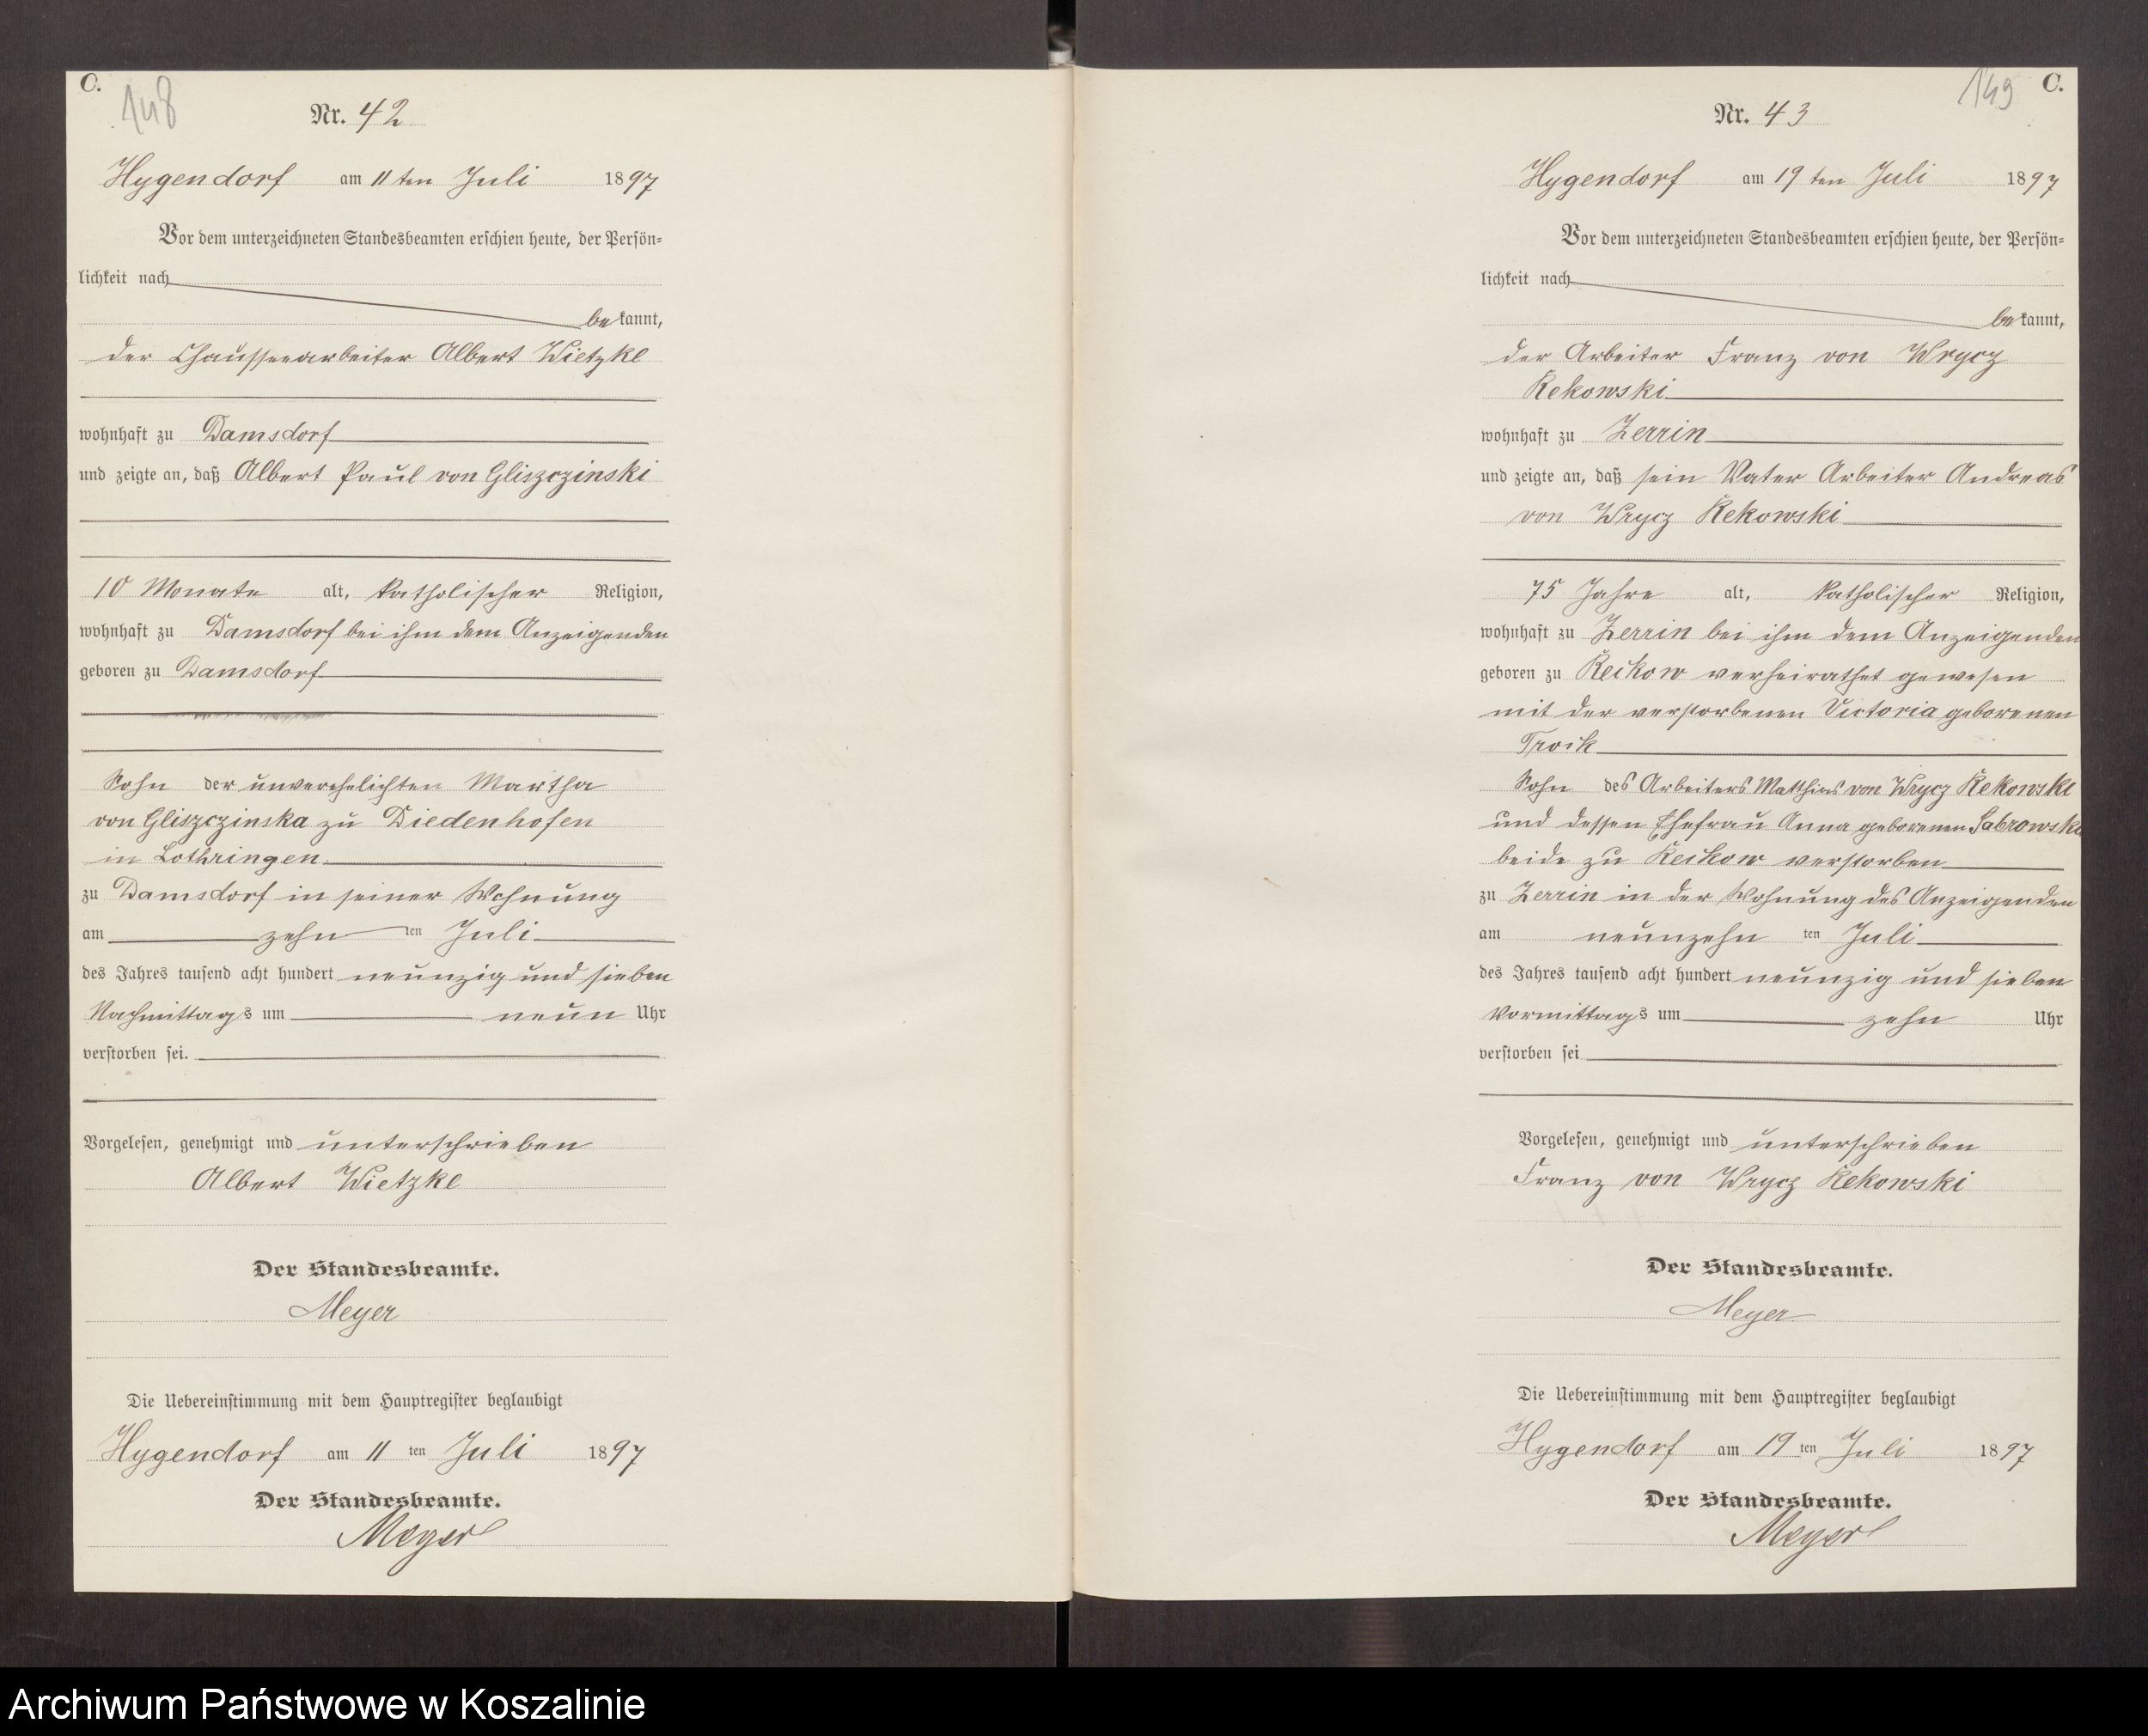 C.
148
Nr. 42
Hygendorf am 11ten Juli 1897
Vor dem unterzeichneten Standesbeamten erschien heute, der Persön=
lichkeit nach
bekannt,
der Chausseearbeiter Albert Wietzke
wohnhaft zu Damsdorf
und zeigte an, daß Albert Paul von Gliszczinski
10 Monate alt, katholischer Religion,
wohnhaft zu Damsdorf bei ihm dem Anzeigenden
geboren zu Damsdorf
Sohn der unverehelichten Martha
von Gliszczinska zu Diedenhofen
in Lothringen
zu Damsdorf in seiner Wohnung
am zehn ten Juli
des Jahres tausend acht hundert neunzig und sieben
Nachmittags um neun Uhr
verstorben sei.
Vorgelesen, genehmigt und unterschrieben
Albert Wietzke
Der Standesbeamte.
Meyer
Die Uebereinstimmung mit dem Hauptregister beglaubigt
Hygendorf am 11 ten Juli 1897
Der Standesbeamte.
Meyer
149
C.
Nr. 43
Hygendorf am 19 ten Juli 1897
Vor dem unterzeichneten Standesbeamten erschien heute, der Persön=
lichkeit nach
bekannt,
der Arbeiter Franz von Wrycz
Rekowski
wohnhaft zu Zerrin
und zeigte an, daß sein Vater Arbeiter Andreas
von Wrycz Rekowski
75 Jahre alt, katholischer Religion,
wohnhaft zu Zerrin bei ihm dem Anzeigenden
geboren zu Reckow verheirathet gewesen
mit der verstorbenen Victoria geborenen
Troik
Sohn des Arbeiters Matthias von Wrycz Rekowski
und dessen Ehefrau Anna geborenen Sabrowski
beide zu Reckow verstorben
zu Zerrin in der Wohnung des Anzeigenden
am neunzehn ten Juli
des Jahres tausend acht hundert neunzig und sieben
Vormittags um zehn Uhr
verstorben sei
Vorgelesen, genehmigt und unterschrieben
Franz von Wrycz Rekowski
Der Standesbeamte.
Meyer
Die Uebereinstimmung mit dem Hauptregister beglaubigt
Hygendorf am 19 ten Juli 1897
Der Standesbeamte.
Meyer
Archiwum Państwowe w Koszalinie